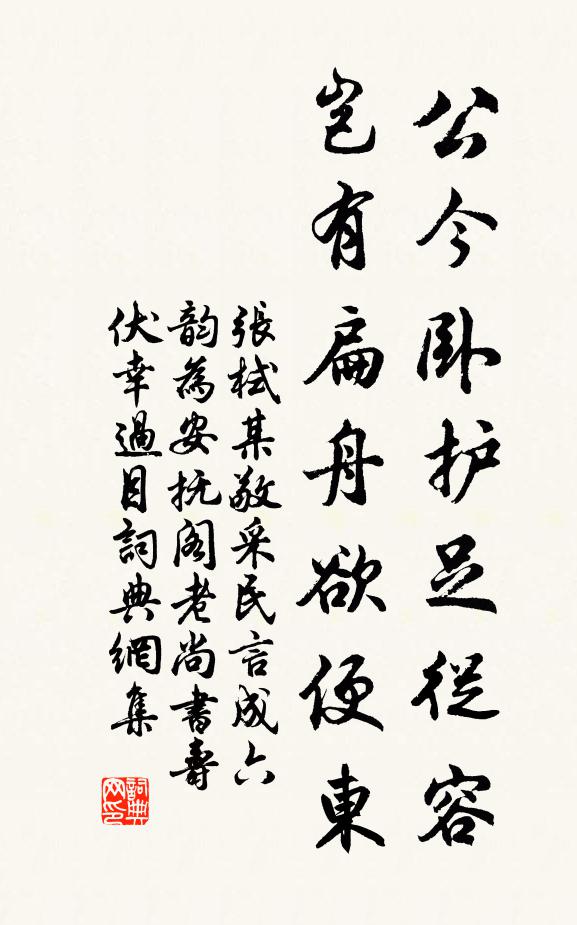 公今卧护足從容
岂有扁舟欲便東
張栻某敬采民言成六
韵為安抚阁老尚書壽
伏幸過目詞典網集
詞典网印